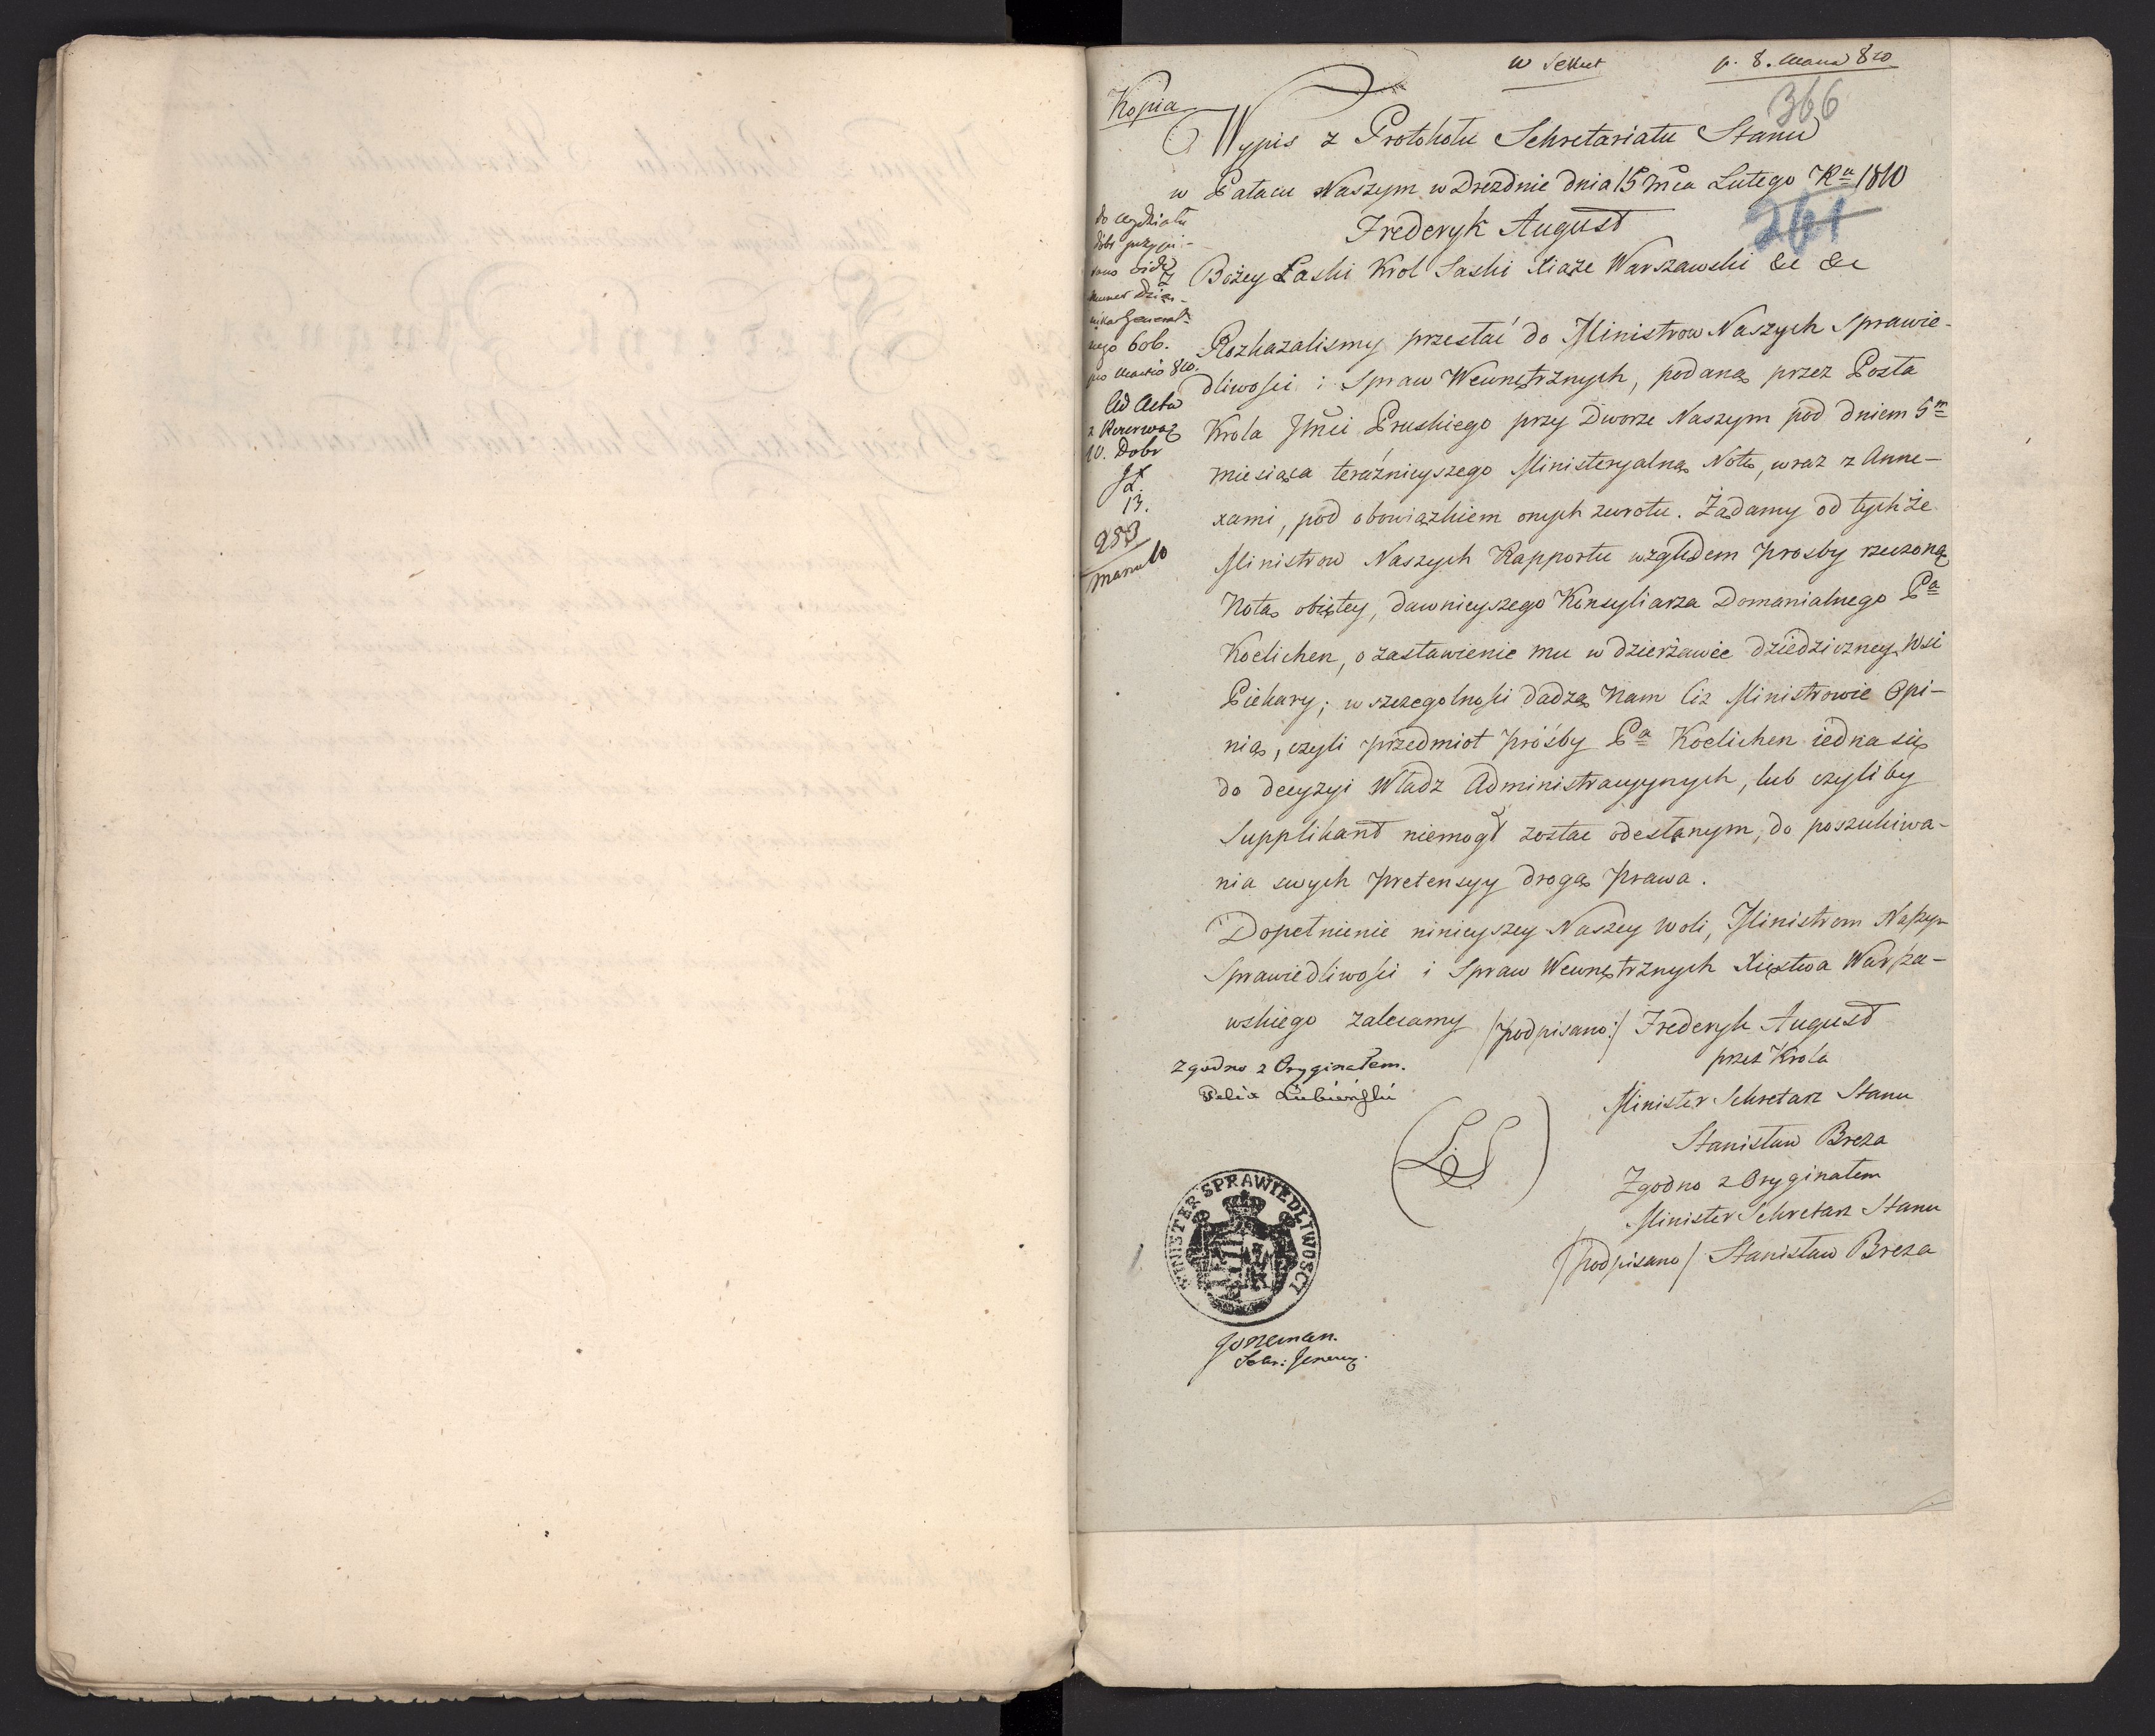 w Sekret p. 8. Marca 810
Kopia
366
Wypis z Protokołu Sekretariatu Stanu
w Pałacu Naszym w Dreźdnie dnia 15 Mca Lutego Ru 1810
261
Frederyk August
Bożey Łaski Krol Saski Xiąże Warszawski &c &c
do wydziału
dóbr przypi-
sano
numer Dzien-
nika General-
nego 606.
Marcio 810.
Ad Acta
z Rezerwą
W. Dobr
13.
283
Marca 10
Rozkazalismy przesłać do Ministrow Naszych Sprawie-
dliwości i Spraw Wewnętrznych, podaną przez Posła
Krola Jmci Pruskiego przy Dworze Naszym pod dniem 5m
miesiąca teraźnieyszego Ministeryalną Notę, wraz z Anne-
xami, pod obowiązkiem onych zwrotu. Żądamy od tychże
Ministrow Naszych Rapportu względem prosby rzeczoną
Notą obiętey, dawnieyszego Konsyliarza Domanialnego Pa
Koelichen, o zastawienie mu w dzierżawie dziedziczney Wsi
Piekary; w szczegolności dadzą Nam ciz Ministrowie Opi-
nią, czyli przedmiot prośby Pa Koelichen iedna się
do decyzyi Władz Administracyynych, lub czyliby
Supplikant niemogł zostać odesłanym, do poszukiwa-
nia swych pretensyy drogą prawa.
Dopełnienie ninieyszey Naszey woli, Ministrom Naszym
Sprawiedliwości i Spraw Wewnętrznych Xięstwa Warsza-
wskiego zalecamy /podpisano:/ Frederyk August
przez Krola
Zgodno z Oryginałem.
Felix Łubieński
Minister Sekretarz Stanu
Stanisław Breza
(L.S)
Zgodno z Oryginałem
Minister Sekretarz Stanu
/podpisano/ Stanisław Breza
MINISTER SPRAWIEDLIWOSCI
Jozeman.
Sekr: Generaz.